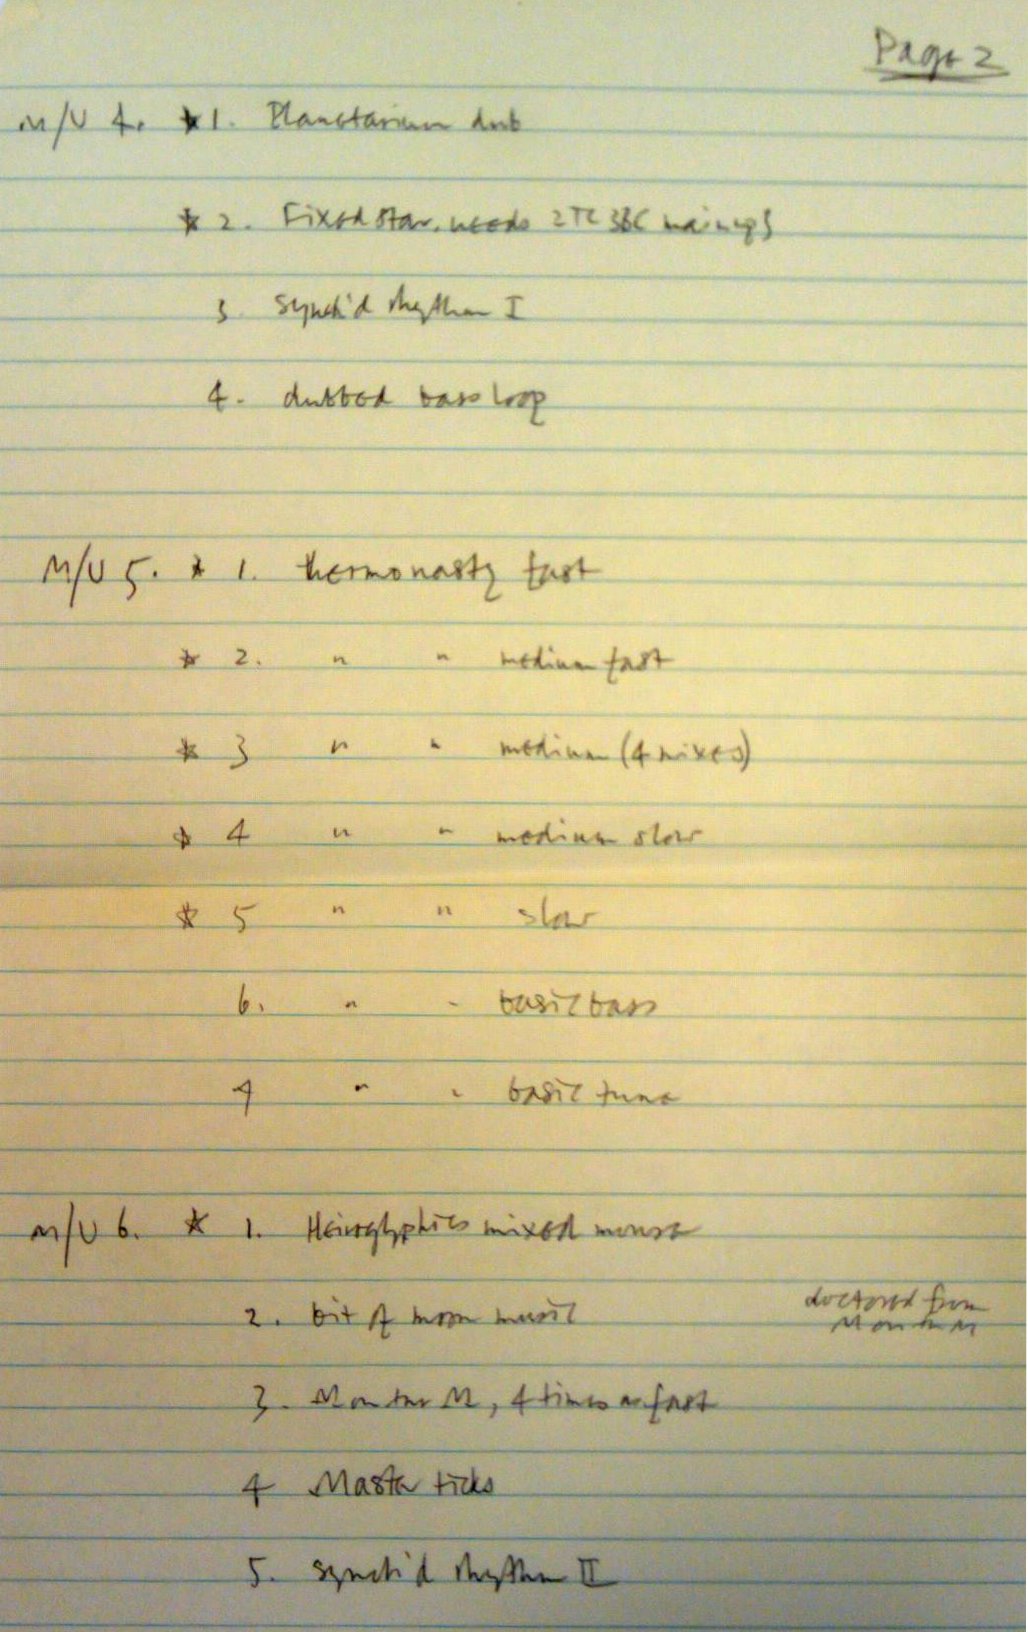 Page 2
M/U 4. * 1. Planetarium dub
* 2. Fixed star. needs 2 TC
3. Synch'd rhythm I
4. dubbed bass loop
M/U 5. * 1. thermonasty fast
* 2. " " medium fast
* 3 " " medium (4 mixes)
* 4 " " medium slow
* 5 " " slow
6. " " basic bass
7 " " basic tune
M/U 6. * 1. Heiroglyphics mixed mouse
2. bit of moon music
doctored from
3. M, 4 times as fast
4 Master ticks
5. Synch'd rhythm II